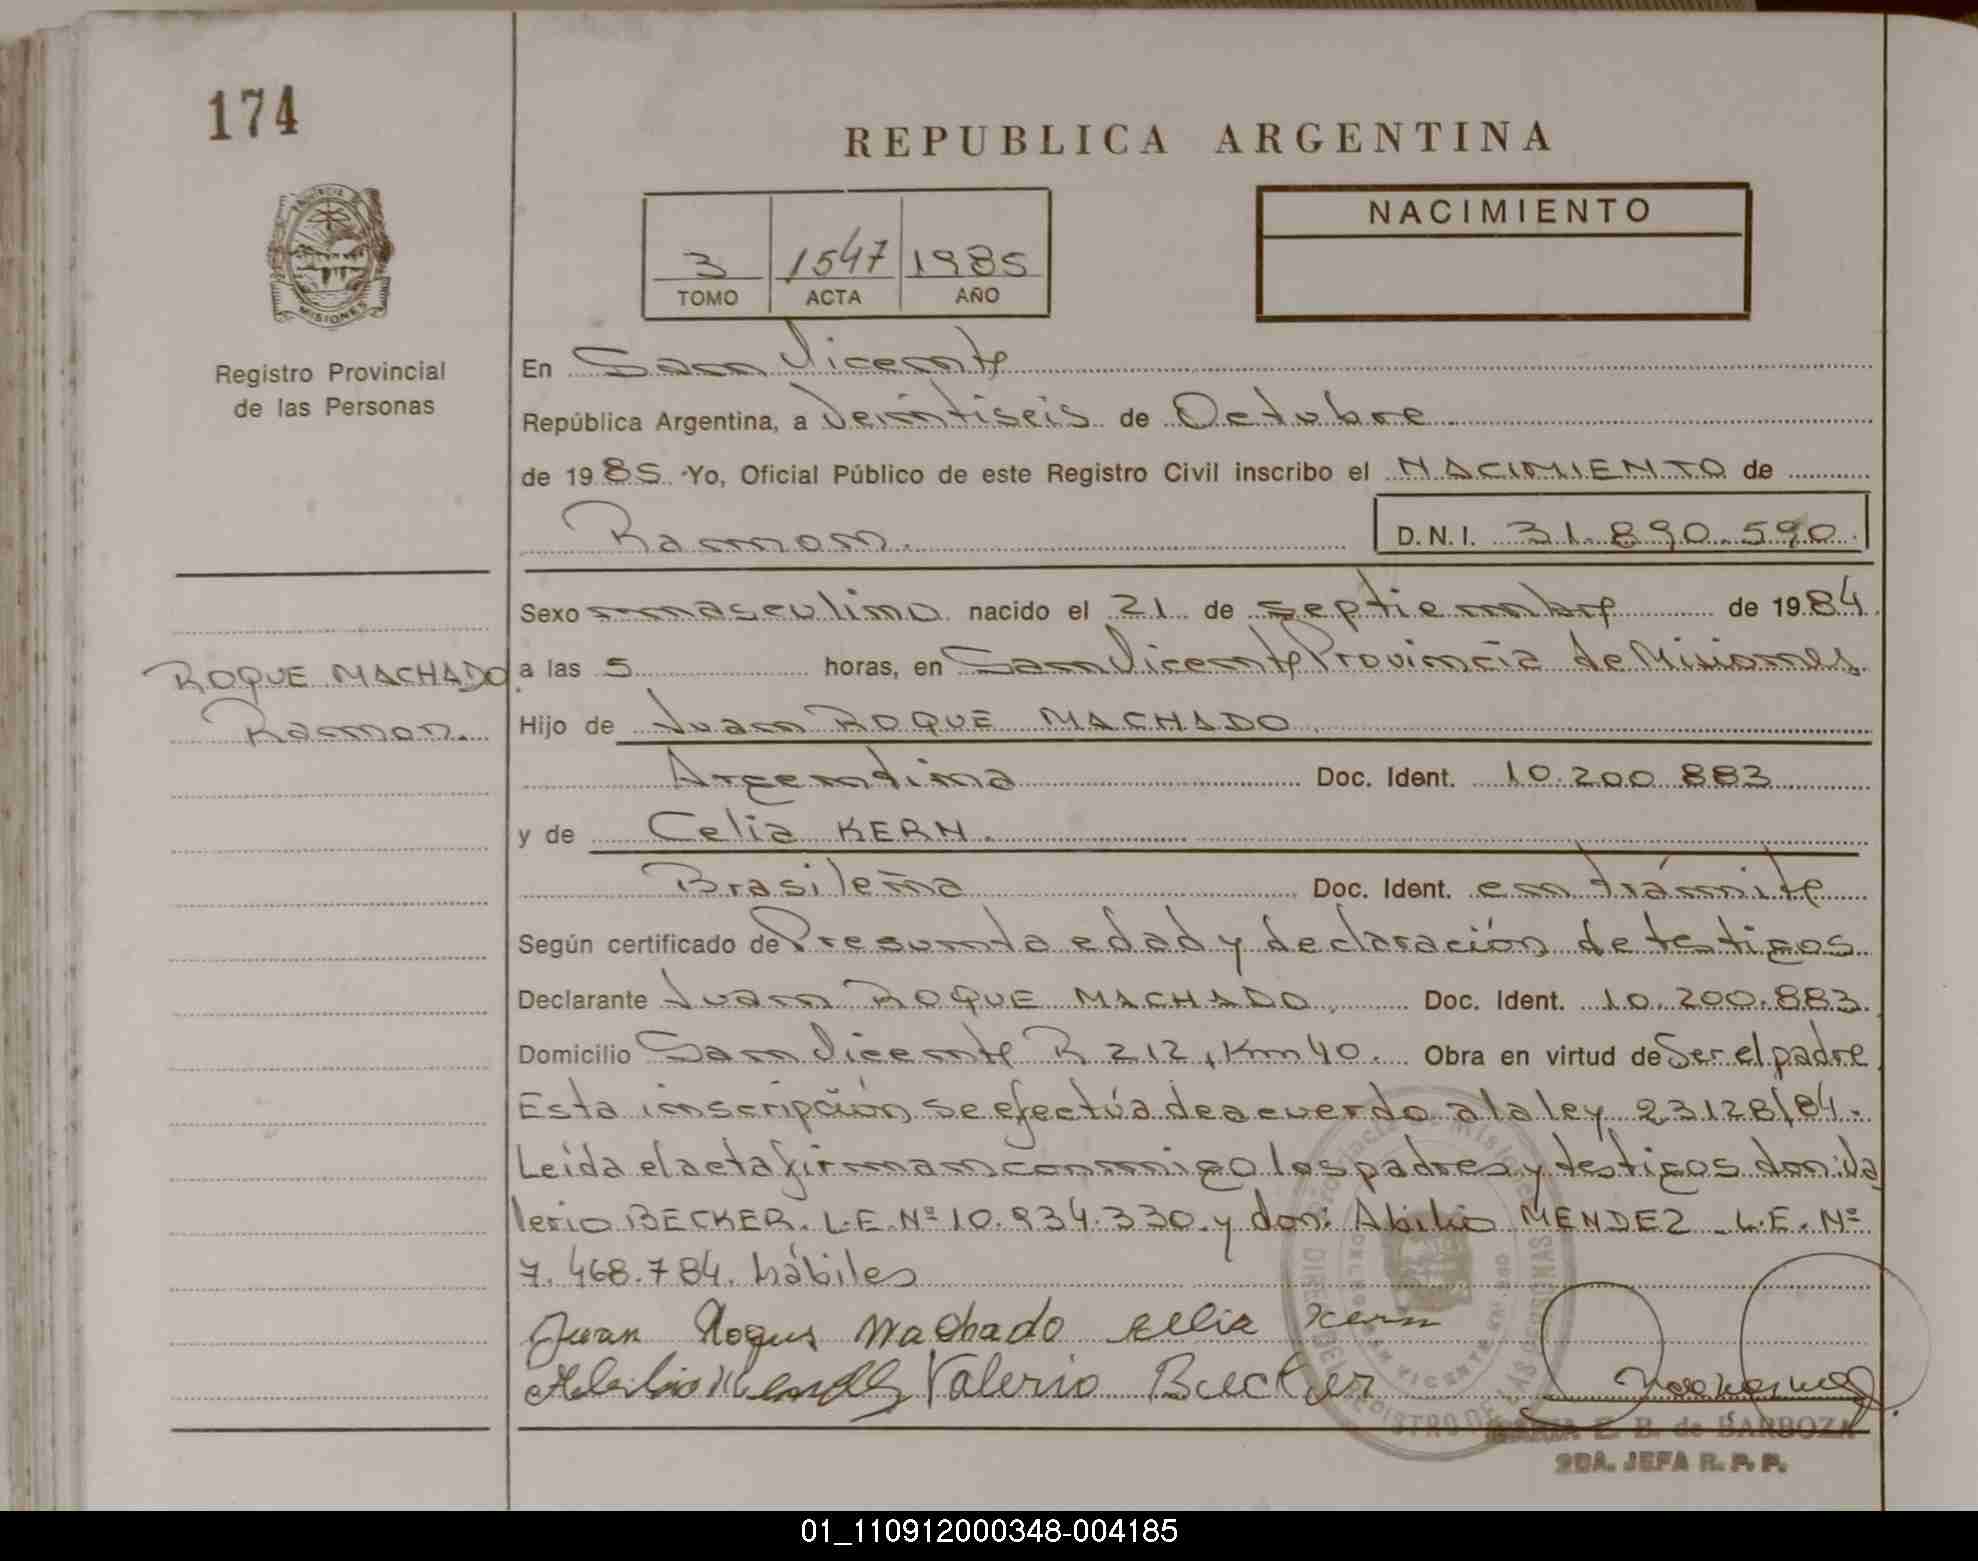 174
REPUBLICA ARGENTINA
PROVINCIA DE
MISIONES
3 1547 1985
TOMO ACTA AÑO
NACIMIENTO
Registro Provincial
de las Personas
En San Vicente
República Argentina, a Veintiseis de Octubre
de 1985 Yo, Oficial Público de este Registro Civil inscribo el NACIMIENTO de
Ramon. D.N.I. 31.890.590.
Sexo masculino nacido el 21 de septiembre de 1984
ROQUE MACHADO
Ramon.
a las 5 horas, en San Vicente Provincia de Misiones.
Hijo de Juan ROQUE MACHADO
Argentina Doc. Ident. 10.200.883
y de Celia KERN.
Brasileña Doc. Ident. en trámite
Según certificado de Presunta edad y declaración de testigos
Declarante Juan ROQUE MACHADO, Doc. Ident. 10.200.883.
Domicilio San Vicente R 212, Km 40. Obra en virtud de Ser el padre
Esta inscripción se efectúa de acuerdo a la ley 23128/84.-
Leída el acta firman conmigo los padres y testigos don: Va
lerio BECKER. L.E. Nº 10.934.330. y don: Abilio MENDEZ L.E. Nº
7.468.784. hábiles
Juan Roque Machado Celia Kern
Valerio Becker
MARIA E. B. de BARBOZA
2DA. JEFA R. P. P.
01_110912000348-004185